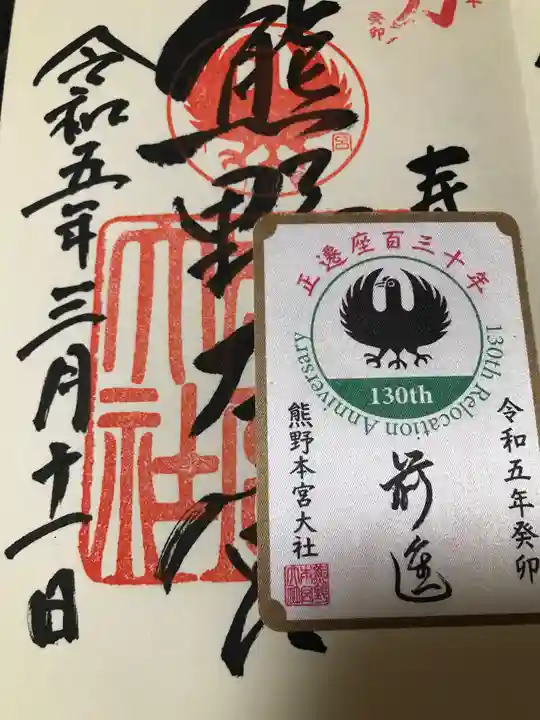 癸卯
寿
熊野大
令和五年三月十一日
正遷座百三十年
130th Relocation Anniversary
130th
令和五年癸卯
前進
熊野本宮大社